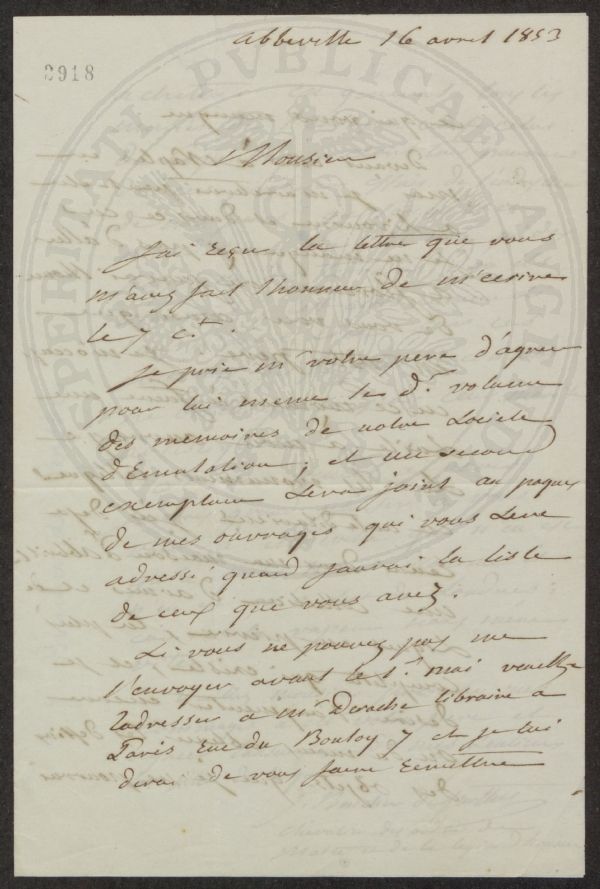 abbeville 16 avril 1853
2918
PERITATI PVBLICAE AVGENDAE
Monsieur
J'ai reçu la lettre que vous
m'avez fait l'honneur de m'ecrire
le 7 ct.
Je prie mr votre pere d'agreer
pour lui meme le dr volume
des memoires de notre Societe
d'Emulation, et un second
exemplaire sera joint au paquet
de mes ouvrages qui vous sera
adressé quand j'aurai la liste
de ceux que vous avez.
Si vous ne pouvez pas me
l'envoyer avant le 1r mai veuillez
l'adresser a mr Derache libraire a
Paris rue du Bouloy 7 et je lui
dirai de vous faire remettre